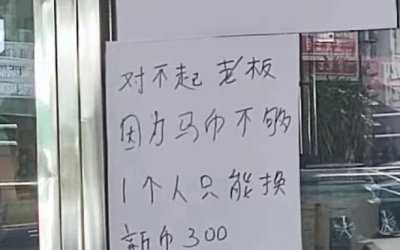 对不起 老板
因为马币不够
1个人只能换
新币300